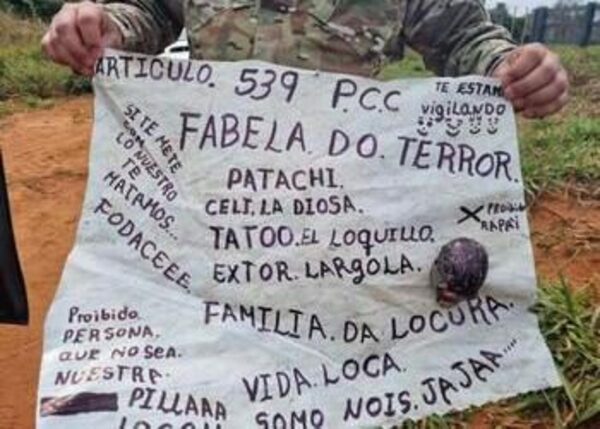 ARTICULO. 539 P.C.C
TE ESTAM
vigilANDO
FABELA. DO. TERROR.
SI.TE METE
CON NUESTRO
LO
TE
MATAMOS...
FODACEEE.
PATACHI.
CELT. LA DIOSA.
TATOO. EL LOQUILLO.
EXTOR. LARGOLA.
X PROIBIDO
RAPAI
FAMILIA. DA LOCURA.
Proibido
PERSONA.
QUE NO SEA.
NUESTRA.
VIDA. LOCA.
PILLAAA
SOMO NOIS. JAJAA....